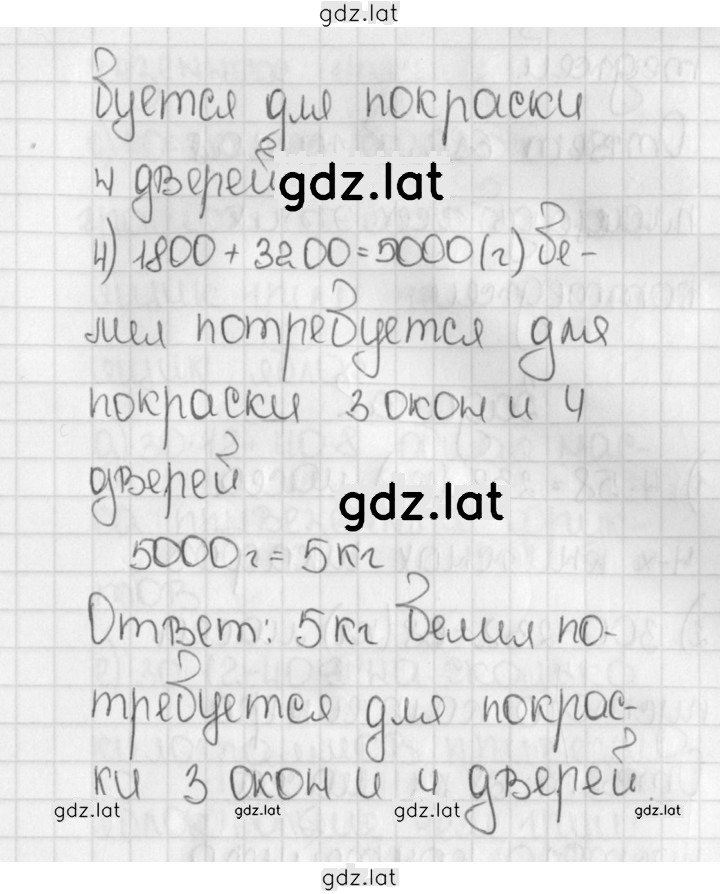 gdz.lat
буется для покраски
4 дверей
gdz.lat
4) 1800 + 3200 = 5000 (г) бе-
лил потребуется для
покраски 3 окон и 4
дверей
gdz.lat
5000 г = 5 кг
Ответ: 5 кг белил по-
требуется для покрас-
ки 3 окон и 4 дверей.
gdz.lat gdz.lat gdz.lat gdz.lat
gdz.lat